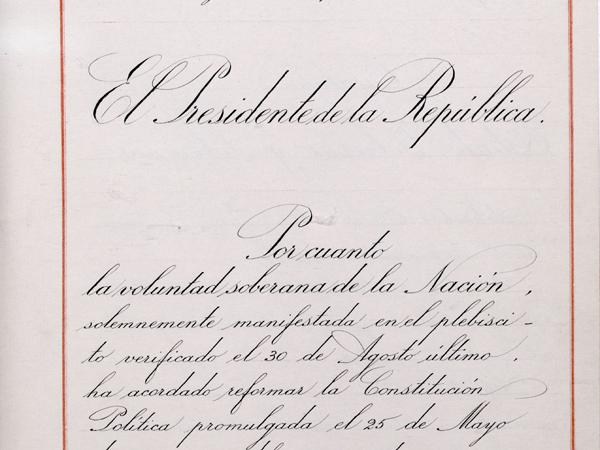 El Presidente de la República.
Por cuanto
la voluntad soberana de la Nación,
solemnemente manifestada en el plebisci-
to verificado el 30 de Agosto último,
ha acordado reformar la Constitución
Política promulgada el 25 de Mayo